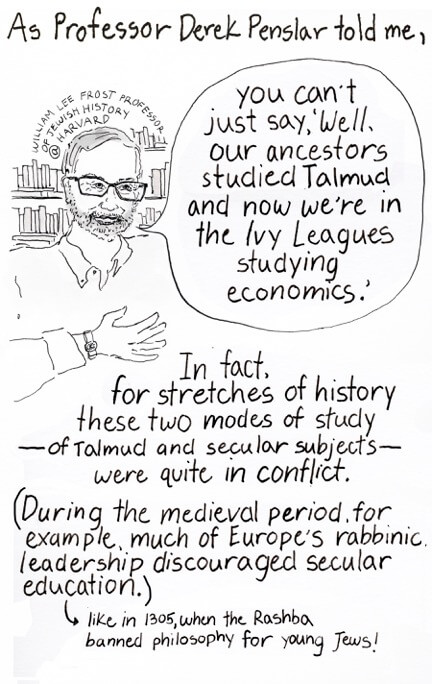 As Professor Derek Penslar told me,
WILLIAM LEE FROST PROFESSOR
OF JEWISH HISTORY
@
HARVARD
you can't
just say, 'Well,
our ancestors
studied Talmud
and now we're in
the Ivy Leagues
studying
economics.'
In fact,
for stretches of history
these two modes of study
—of Talmud and secular subjects—
were quite in conflict.
(During the medieval period, for
example, much of Europe's rabbinic
leadership discouraged secular
education.)
like in 1305, when the Rashba
banned philosophy for young Jews!